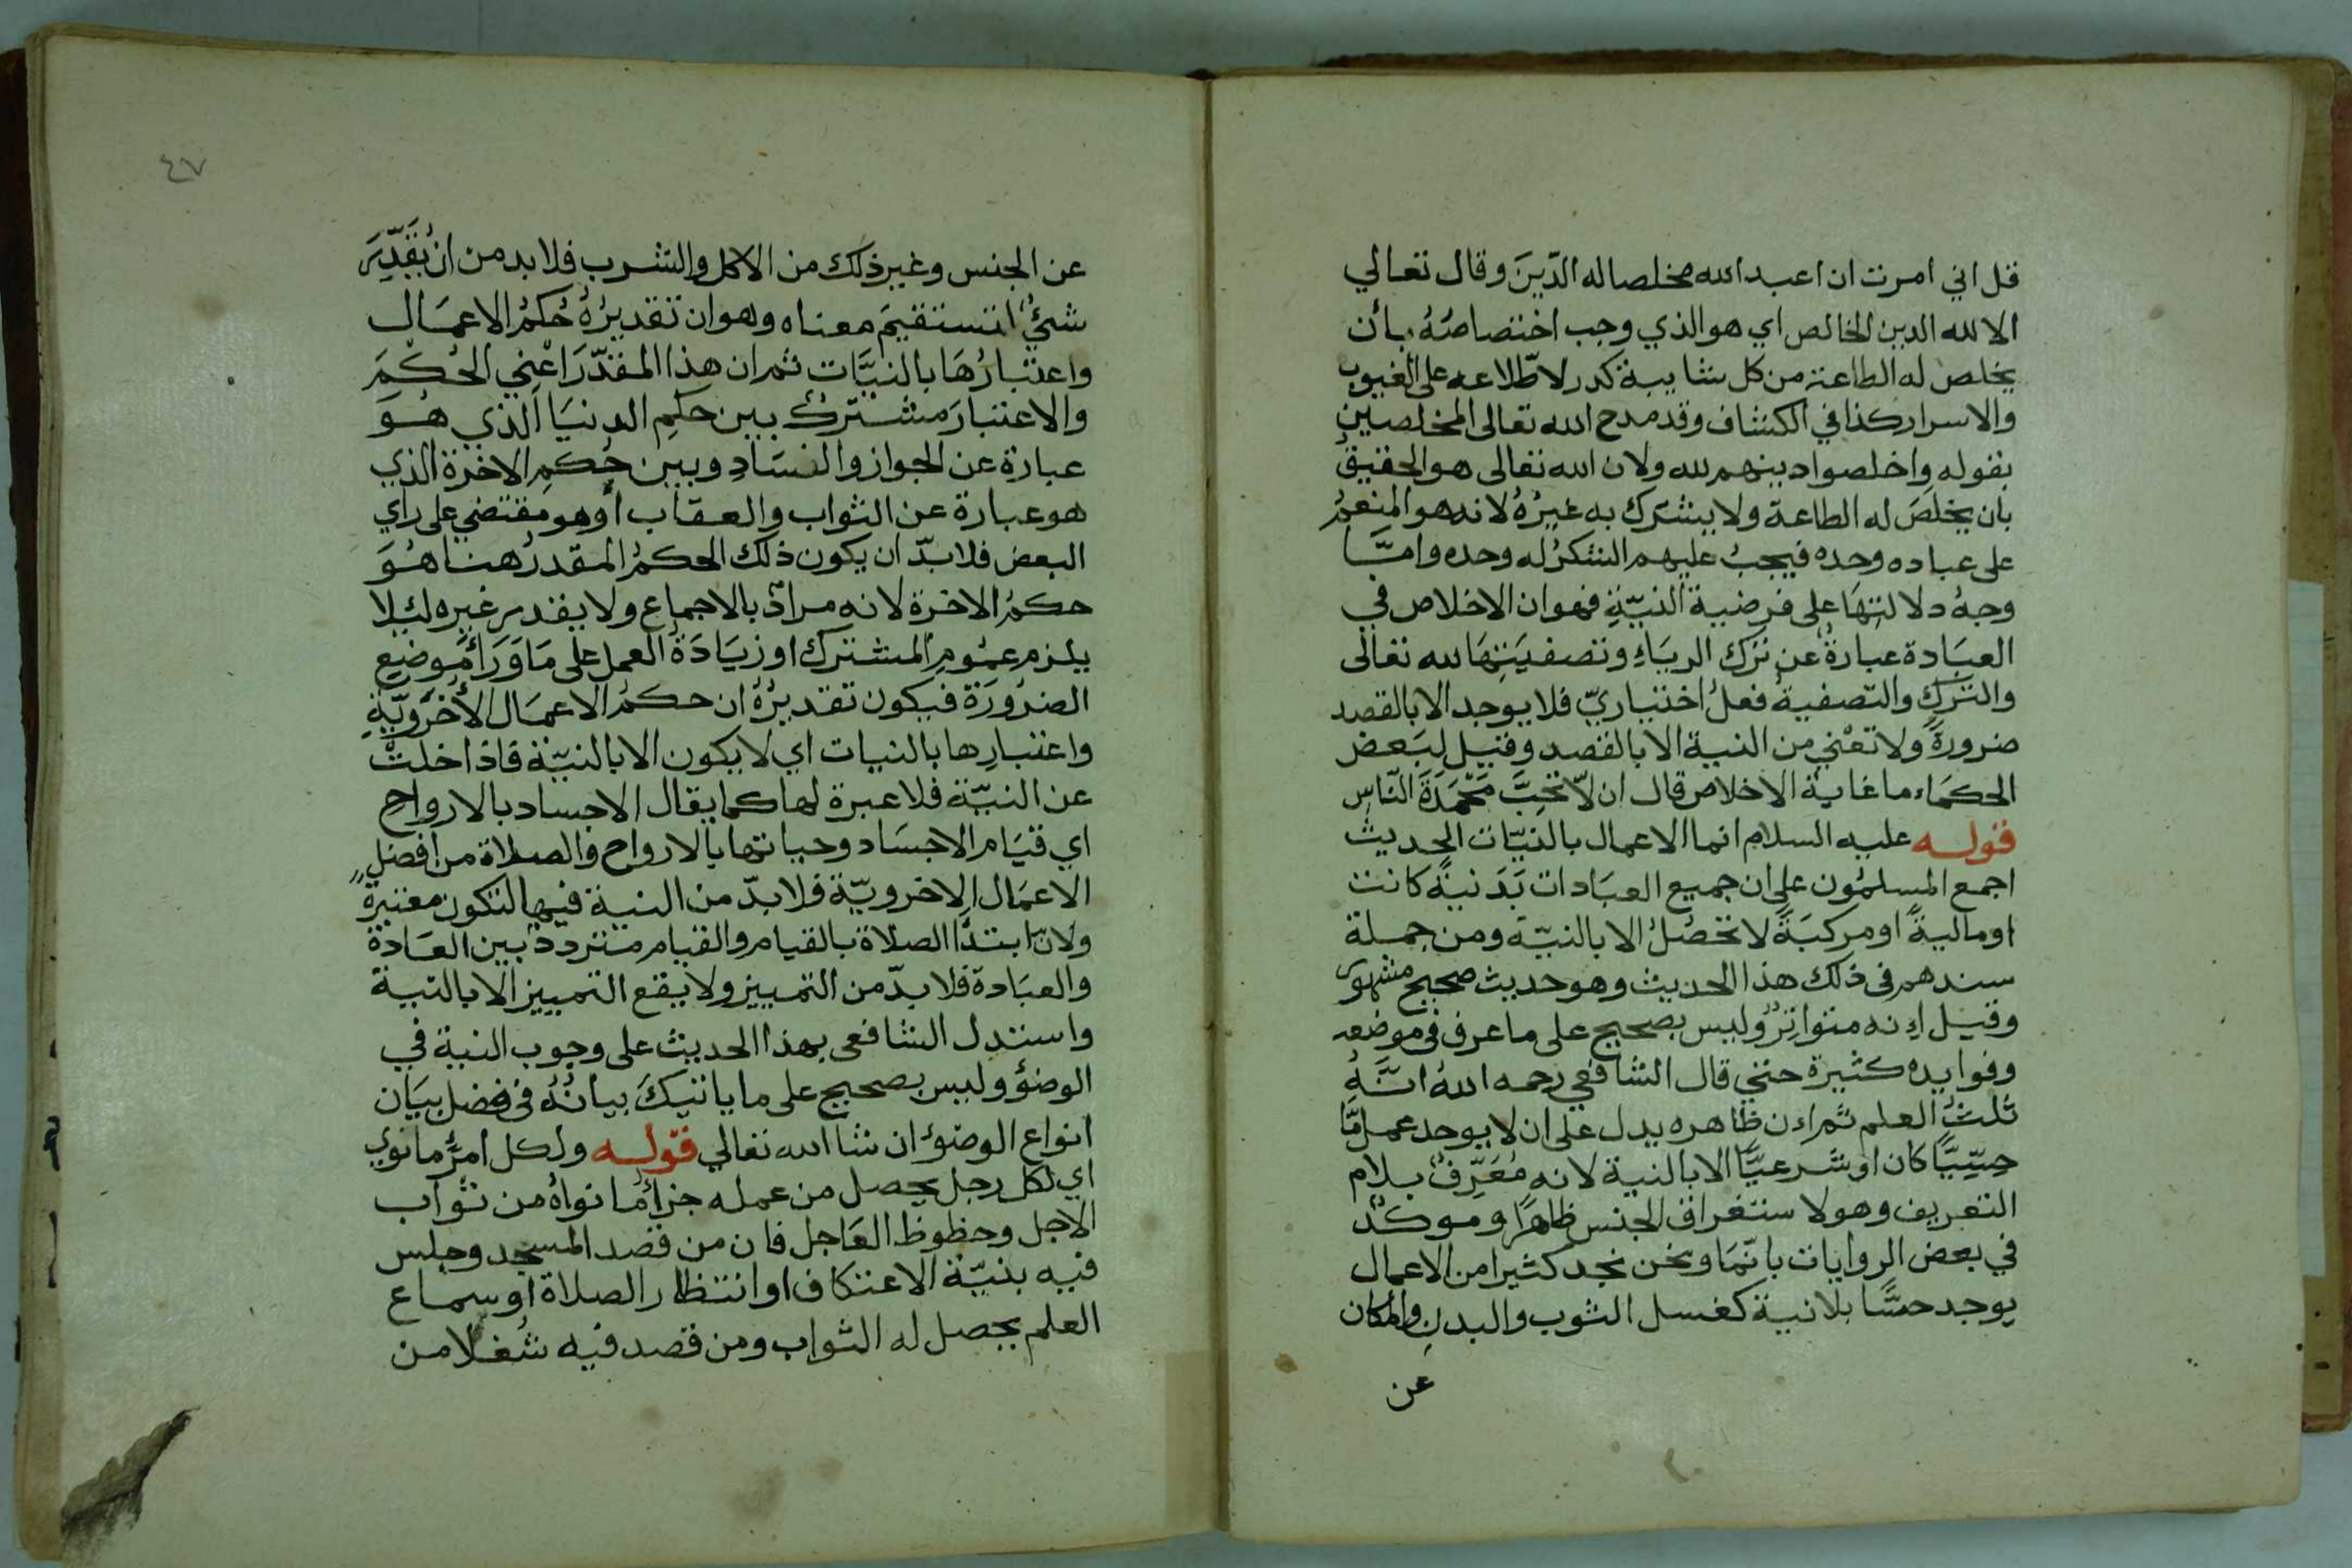 قل اني امرت ان اعبد الله مخلصا له الدّينَ وقال تعالي
الا لله الدين الخالص اي هو الذي وجب اختصاصُهُ بأن
يخلص له الطاعة من كل شايبة كدر لاطّلاعه على الغيوب
والاسرار كذا في الكشاف وقد مدح الله تعالى المخلصين
بقوله واخلصوا دينهم لله ولان الله تعالى هو الحقيقُ
بان يخلصَ له الطاعة ولا يشترك به غيرُهُ لانه هو المنعمُ
على عباده وحده فيجبُ عليهم الشكرُ له وحده وامّا
وجهُ دلالتِهَا على فرضية النيّةِ فهو ان الاخلاص في
العبَادة عبارةٌ عن ترك الريَاءِ وتصفيَتِهَا لله تعالى
والتركِ والتصفيةُ فعلٌ اختياريّ فلا يوجد الا بالقصد
ضرورةً ولا تعْني من النية الا بالقصد وقيل لبَعض
الحكمَاء ما غاية الاخلاص قال ان لّا تحِبَّ مَحْمَدَةَ النّاسِ
قوله عليه السلام انما الاعمال بالنيّات الحديث
اجمع المسلمُون على ان جميع العبَادات بَدَنيةً كانت
او ماليةً او مركبَةً لا تحصُلُ الا بالنيّة ومن جملة
سندهم فى ذلك هذا الحديث وهو حديث صحيح مشهور
وقيل اِنه متواترٌ وليس بصحيح على ما عرف فى موضعه
وفوايده كثيرة حتي قال الشافعي رحمه اللهُ انّهُ
ثلثُ العلم ثم اِن ظاهره يدل على ان لا يوجد عمل مّا
حِسِّيًّا كان او شَرعيًّا الا بالنية لانه مُعَرَّفٌ بلام
التعريف وهو لاستغراق الجنس ظاهرًا وموكدٌ
في بعض الروايات بانّمَا ونحن نجد كثيرا من الاعمال
يوجد حسًّا بلا نية كغسل الثوب والبدنِ والمكان
عن
٤٧
عن الجنس وغير ذلك من الاكل والشرب فلا بد من ان يُقَدّرَ
شيءٌ لتستقيمَ معناه وهو ان تقديرُهُ حُكمُ الاعمَال
واعتبارُهَا بالنيَّات ثم ان هذا المقدّرَ اعْني الحُكمَ
والاعتبارَ مشتركٌ بين حكمِ الدنيَا الذي هُوَ
عبارة عن الجواز والفسَادِ وبين حُكمِ الاخرة الذي
هو عبارة عن الثواب والعقاب او هو مقتضي على راي
البعض فلا بدّ ان يكون ذلك الحكمُ المقدرُ هنا هُوَ
حكمُ الاخرة لانه مرادٌ بالاجماع ولا يقدر غيره ليلا
يلزم عمُوم المشترك او زيَادَةُ العمل على مَا وَرَاءَ مَوضع
الضرُورَة فيكون تقديرُهُ ان حكمُ الاعمَال الأُخْرَوِيّةِ
واعتبارِها بالنيات اي لا يكون الا بالنيّة فاذا خلتْ
عن النيّة فلا عبرة لها كما يقال الاجساد بالارواح
اي قيَام الاجسَاد وحياتها بالارواح والصلاة من افضل
الاعمَال الاخرويّة فلا بدّ من النية فيها لتكون معتبرةً
ولانّ ابتدَاَ الصلاة بالقيام والقيام متردد بين العَادة
والعبَادة فلا بدّ من التمييز ولا يقع التمييز الا بالنية
واستدل الشافعى بهذا الحديث على وجوب النية في
الوضؤ وليس بصحيح على ما ياتيكَ بيانُهُ فى فصل بيَان
انواع الوضؤ ان شا الله تعالي قوله ولكل امرُءٍ ما نوي
اي لكل رجل يحصل من عمله جزاءُ ما نواهُ من ثواب
الاجل وحظوظ العَاجل فان من قصد المسجد وجلس
فيه بنيّة الاعتكاف او انتظار الصلاة او سماع
العلم يحصل له الثواب ومن قصد فيه شُغلا من